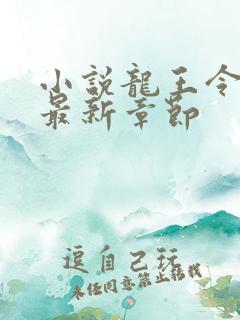 小説龍王令
最新章節
逗自己玩
未经同意禁止转载